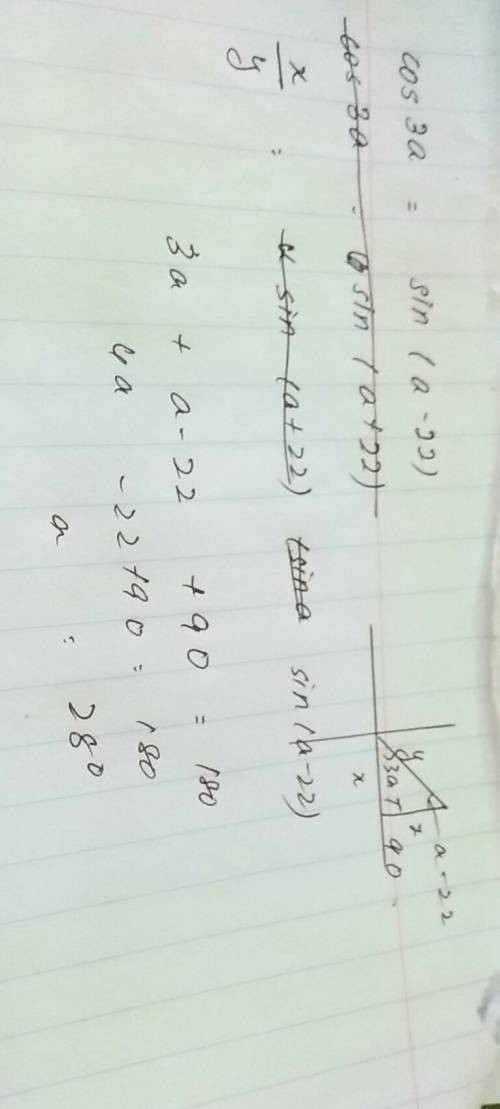 cos 3a = sin (a-22)
cos 3a = sin (a+22)
x/y = sin (a+22) sin a sin (a-22)
3a + a-22 + 90 = 180
4a -22+90 = 180
a = 28°
y
a-22
3a
x
90